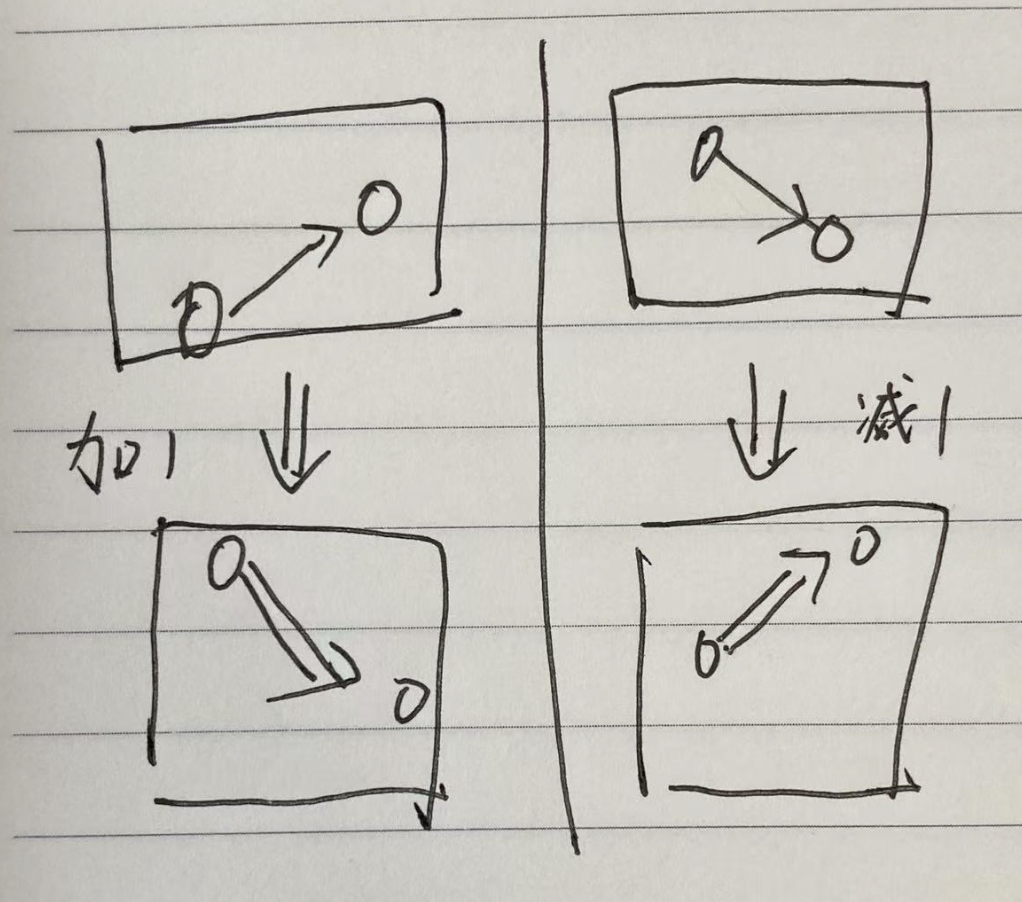 加1
减1